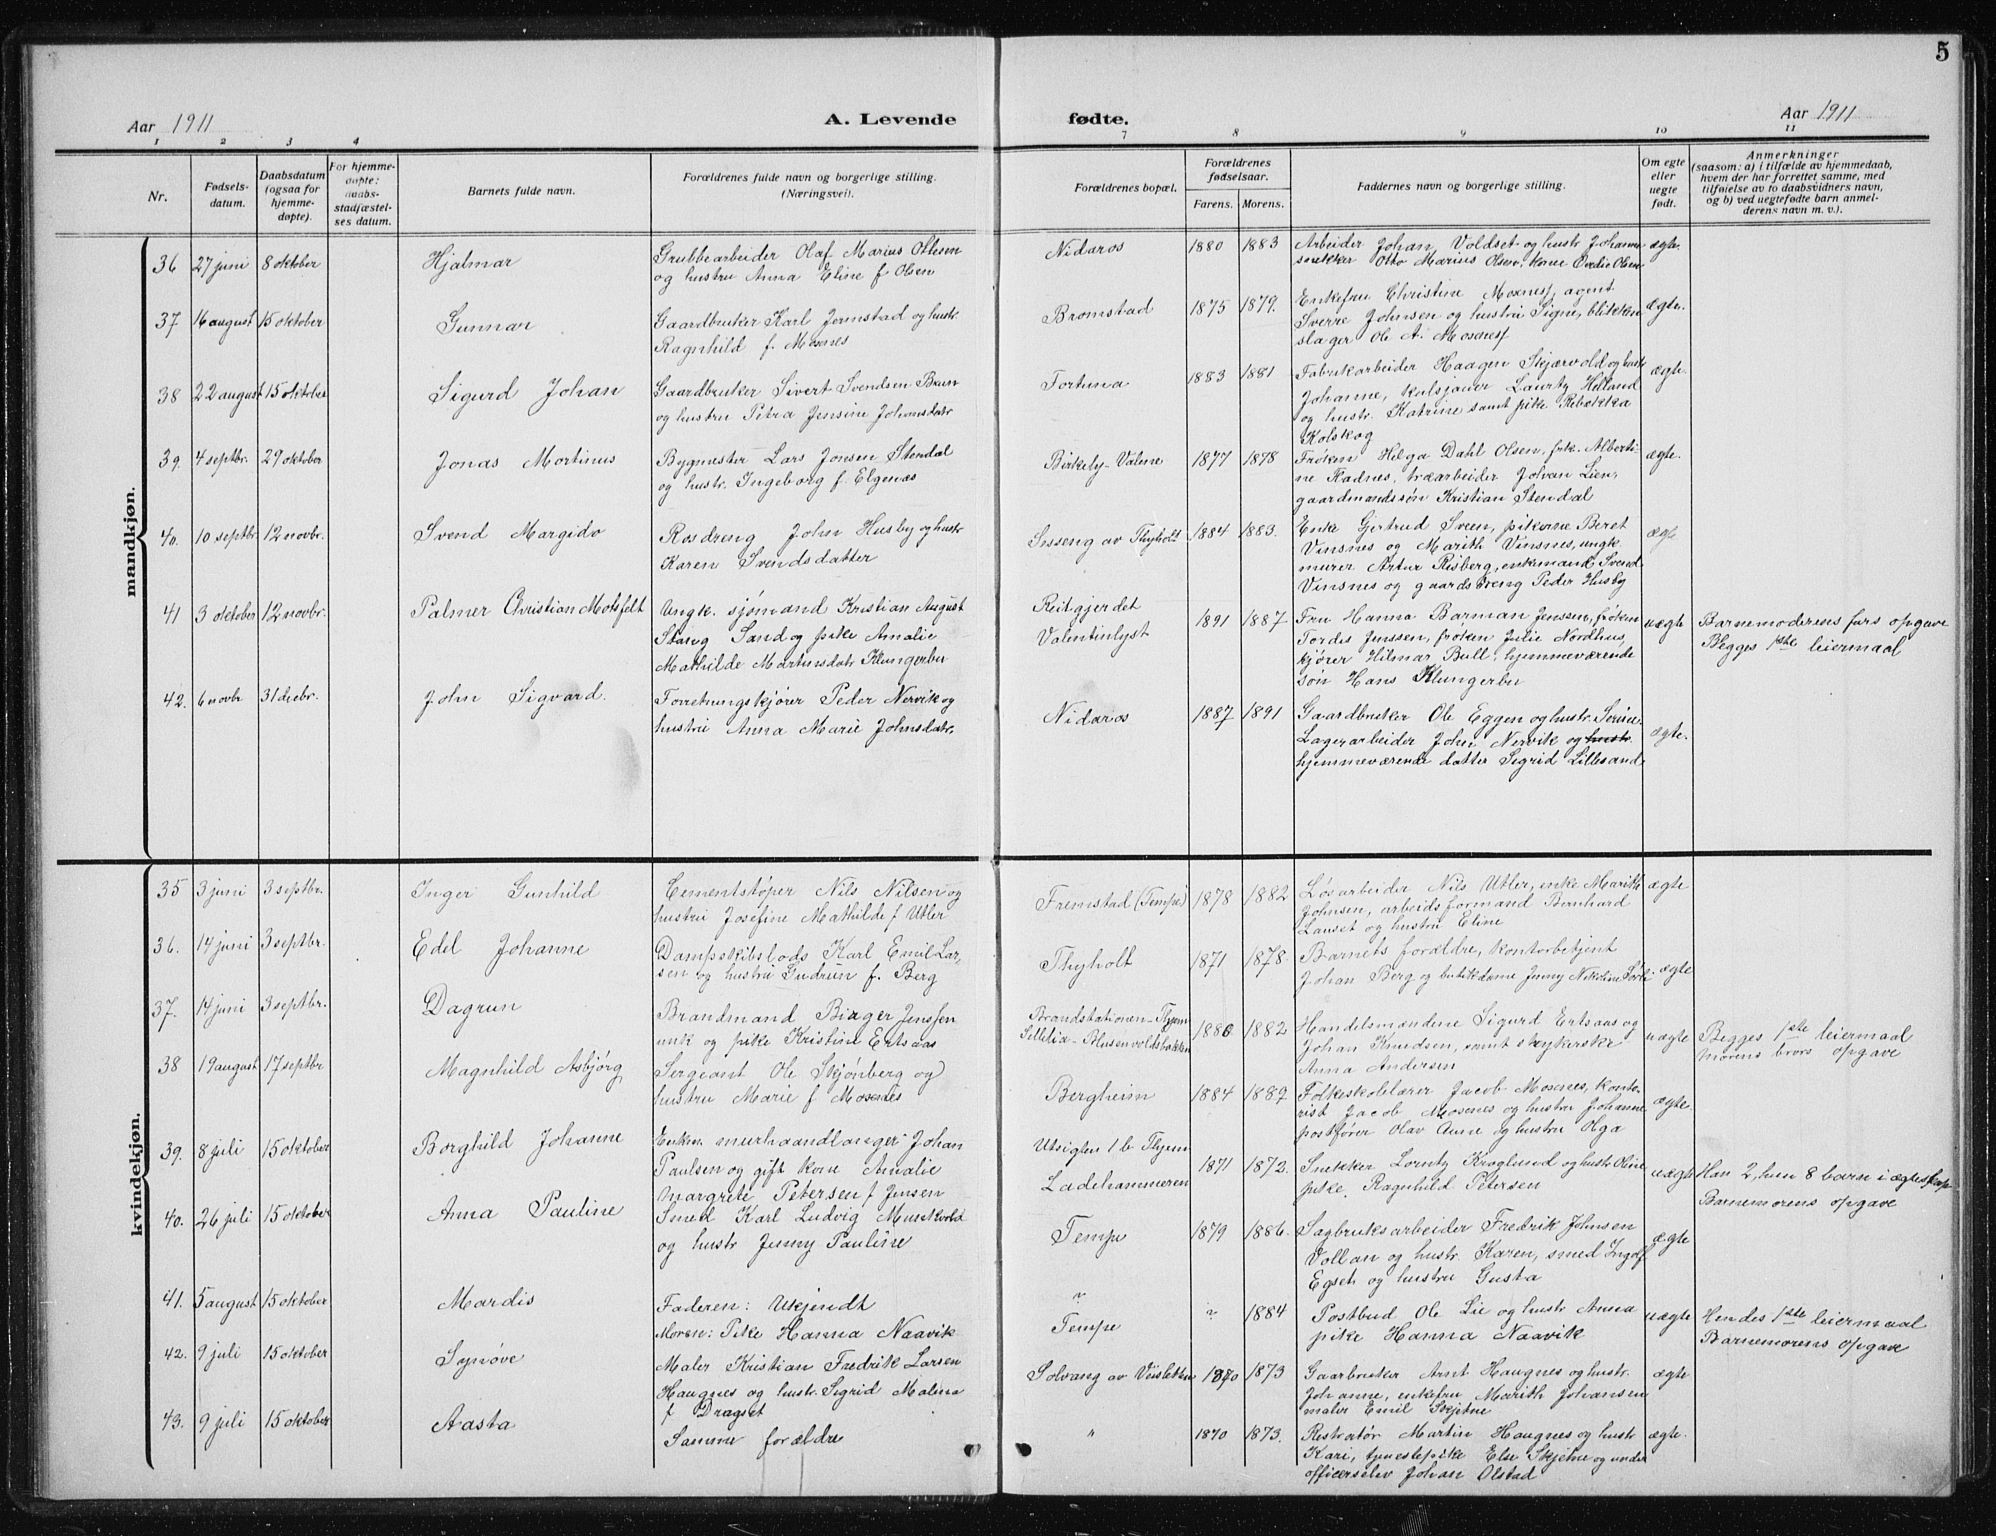 5
Aar 1911
A. Levende
fødte.
Aar 1911
1 2 3 4
7 8 9 10 11
Nr.
Fødsels-
datum.
Daabsdatum
(ogsaa for
hjemme-
døpte).
For hjemme-
døpte:
daabs-
stadfæstel-
ses datum.
Barnets fulde navn.
Forældrenes fulde navn og borgerlige stilling.
(Næringsvei).
Forældrenes bopæl.
Forældrenes
fødselsaar.
Farens. Morens.
Faddernes navn og borgerlige stilling.
Om egte
eller
uegte
født.
Anmerkninger
(saasom: a) i tilfælde av hjemmedaab,
hvem der har forrettet samme, med
tilføielse av to daabsvidners navn,
og b) ved uegtefødte barn anmel-
derens navn m. v.).
mandkjøn.
36 27 juni 8 oktober Hjalmar
Grubbearbeider Olaf Marius Ottesen
og hustru Anna Eline f Olsen
Nidaros 1880 1883
Arbeider Johan Voldset og hustr Johanne
snekker Otto Marius Olsen, kone Ovedie Olsen
ægte.
37 16 august 15 oktober Gunnar
Gaardbruker Karl Jermstad og hustr.
Ragnhild f. Moxnes
Bromstad 1875 1879.
Enkefru Christine Moxnes, agent
Sverre Johnsen og hustru Signe, blikken
slager Ole A. Moxnes
ægte.
38 22 august 15 oktober Sigurd Johan
Gaardbruker Sivert Svendsen Brun
og hustru Petra Jensine Johansdatr
Fortuna 1883 1881
Fabrikarbeider Haagen Skjærvold og hustr
Johanne, kulsjauer Lauritz Helland
og hustr. Katrine samt pike Rebekka
Kolskog
ægte.
39. 4 septbr. 29 oktober Jonas Martinus
Bygmester Lars Jonsen Stendal
og hustr. Ingeborg f. Elgenæs
Birkely-Valene 1877 1878
Frøken Helga Dahl Olsen, frk. Alberti-
ne Radnes, træarbeider Johan Lien,
gaardmandssøn Kristian Stendal
ægte.
40. 10 septbr. 12 novbr. Svend Margido
Rosdreng John Husby og hustr
Karen Svendsdatter
Sisseng av Thyholt 1884 1883.
Enke Gjertrud Sveen, pikerne Beret
Vinsnes og Marith Vinsnes, ungk.
murer Artur Risberg, enkemand Svend
Vinsnes og gaardsdreng Peder Husby
ægte
41 3 oktober 12 novbr. Palmer Christian Motzfelt
Ungk. sjømand Kristian August
Stang Sand og pike Amalie
Mathilde Martinsdatr Klungerbu
Reitgjerdet
Valentinlyst
1891 1887
Fru Hanna Barman Jenssen, frøken
Tordis Jenssen, frøken Julie Nordhus,
kjører Hilmar Bull, hjemmeværende
søn Hans Klungerbu
uægte
Barnemoderens fars opgave
Begges 1ste leiermaal
42. 6 novbr 31 decbr. John Sigvard.
Forretningskjører Peder Nervik og
hustru Anna Marie Johnsdatr.
Nidaros 1887 1891
Gaardbruker Ole Eggen og hustr. Serine.
Lagerarbeider John Nervik og hustr.
hjemmeværende datter Sigrid Lillesand
ægte.
kvindekjøn.
35 3 juni 3 septbr. Inger Gunhild
Cementstøper Nils Nilsen og
hustru Josefine Mathilde f Utler
Fremstad (Tempe) 1878 1882
Løsarbeider Nils Utler, enke Marith
Johnsen, arbeidsformand Bernhard
Lauset og hustru Eline
ægte
36. 14 juni 3 septbr. Edel Johanne
Dampskibslods Karl Emil Lar-
sen og hustru Gudrun f. Berg
Thyholt 1871 1878.
Barnets forældre, kontorbetjent
Johan Berg og butikdame Jenny Nikoline Sorti
ægte
37. 14 juni 3 septbr. Dagrun
Brandmand Birger Jenssen
unk og pike Kristine Ertsaas
Brandstationen-Thjem
Sillilia-Blusenvoldsbakken
1880 1882
Handelsmændene Sigurd Ertsaas og
Johan Knudsen, samt strykerske
Anna Andersen
uægte
Begges 1ste leiermaal
morens brors opgave
38 19 august 17 septbr Magnhild Asbjørg
Sergeant Ole Skjønberg og
hustru Marie f Moxnes
Bergheim 1884 1889
Folkeskolelærer Jacob Moxnes, konto-
rist Jacob Moxnes og hustru Johanne
postfører Olav Aune og hustru Olga
ægte
39. 8 juli 15 oktober Borghild Johanne
Enkem. murhaandlanger Johan
Paulsen og gift kone Amalie
Margrete Petersen f Jensen
Utsigten 1 b Thjem
Ladehammeren
1871 1872.
Snekker Lorntz Kroglund og hustr Oline
pike. Ragnhild Petersen
uægte
Han 2, hun 8 barn i ægteskap
Barnemorens opgave
40. 26 juli 15 oktober Anna Pauline
Smed Karl Ludvig Musskvold
og hustr Jenny Pauline
Tempe 1879 1886.
Sagbruksarbeider Fredrik Johnsen
Vollan og hustr. Karen, smed Ingolf
Egset og hustru Gusta
ægte
41. 5 august 15 oktober Mardis
Faderen: Ukjendt
Moren: Pike Hanna Naavik
"
Tempe
" 1884
Postbud Ole Lie og hustr Anna
pike Hanna Naavik
uægte
Hendes 1ste leiermaal
Barnemorens opgave
42. 9 juli 15 oktober Synøve
Maler Kristian Fredrik Larsen
Haugnes og hustr. Sigrid Malena
f Dragset
Solvang av Veisletten 1870 1873
Gaarbruker Arnt Haugnes og hustr.
Johanne, enkefru Marith Johansen
maler Emil Skjetne
ægte
43. 9 juli 15 oktober Aasta
Samme forældre
" 1870 1873.
Restratør Martin Haugnes og hustr
Kari, tjenestepike Else Skjetne og under
officerselev Johan Olstad
ægte.